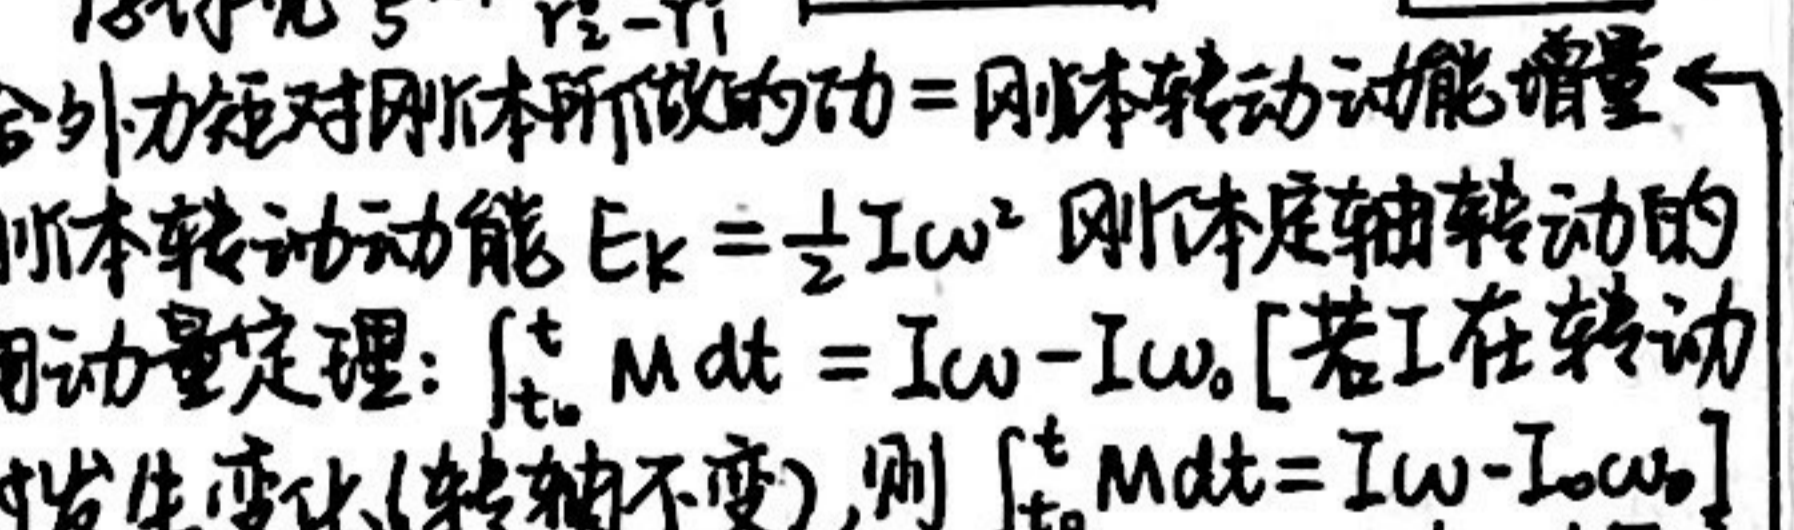 r₂-r₁
合外力矩对刚体所做的功=刚体转动动能增量←
刚体转动动能 Eₖ=½Iω² 刚体定轴转动的
角动量定理: ∫ₜ₀ᵗ Mdt = Iω-Iω₀ [若I在转动
时发生变化(转轴不变),则 ∫ₜ₀ᵗ Mdt=Iω-I₀ω₀]